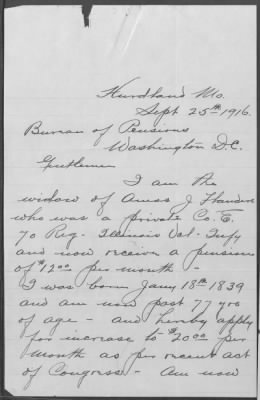 Hurdland Mo.
Sept 25th 1916.
Bureau of Pensions
Washington D.C.
Gentlemen
I am the
widow of Amos J
who was a private Co. E.
70 Reg. Illinois Vol. Infy
and now receive a pension
of $12.00 per month -
I was born Jany 18th 1839
and am now past 77 yrs
of age - and hereby apply
for increase to $20.00 per
month as per recent act
of Congress - Am now